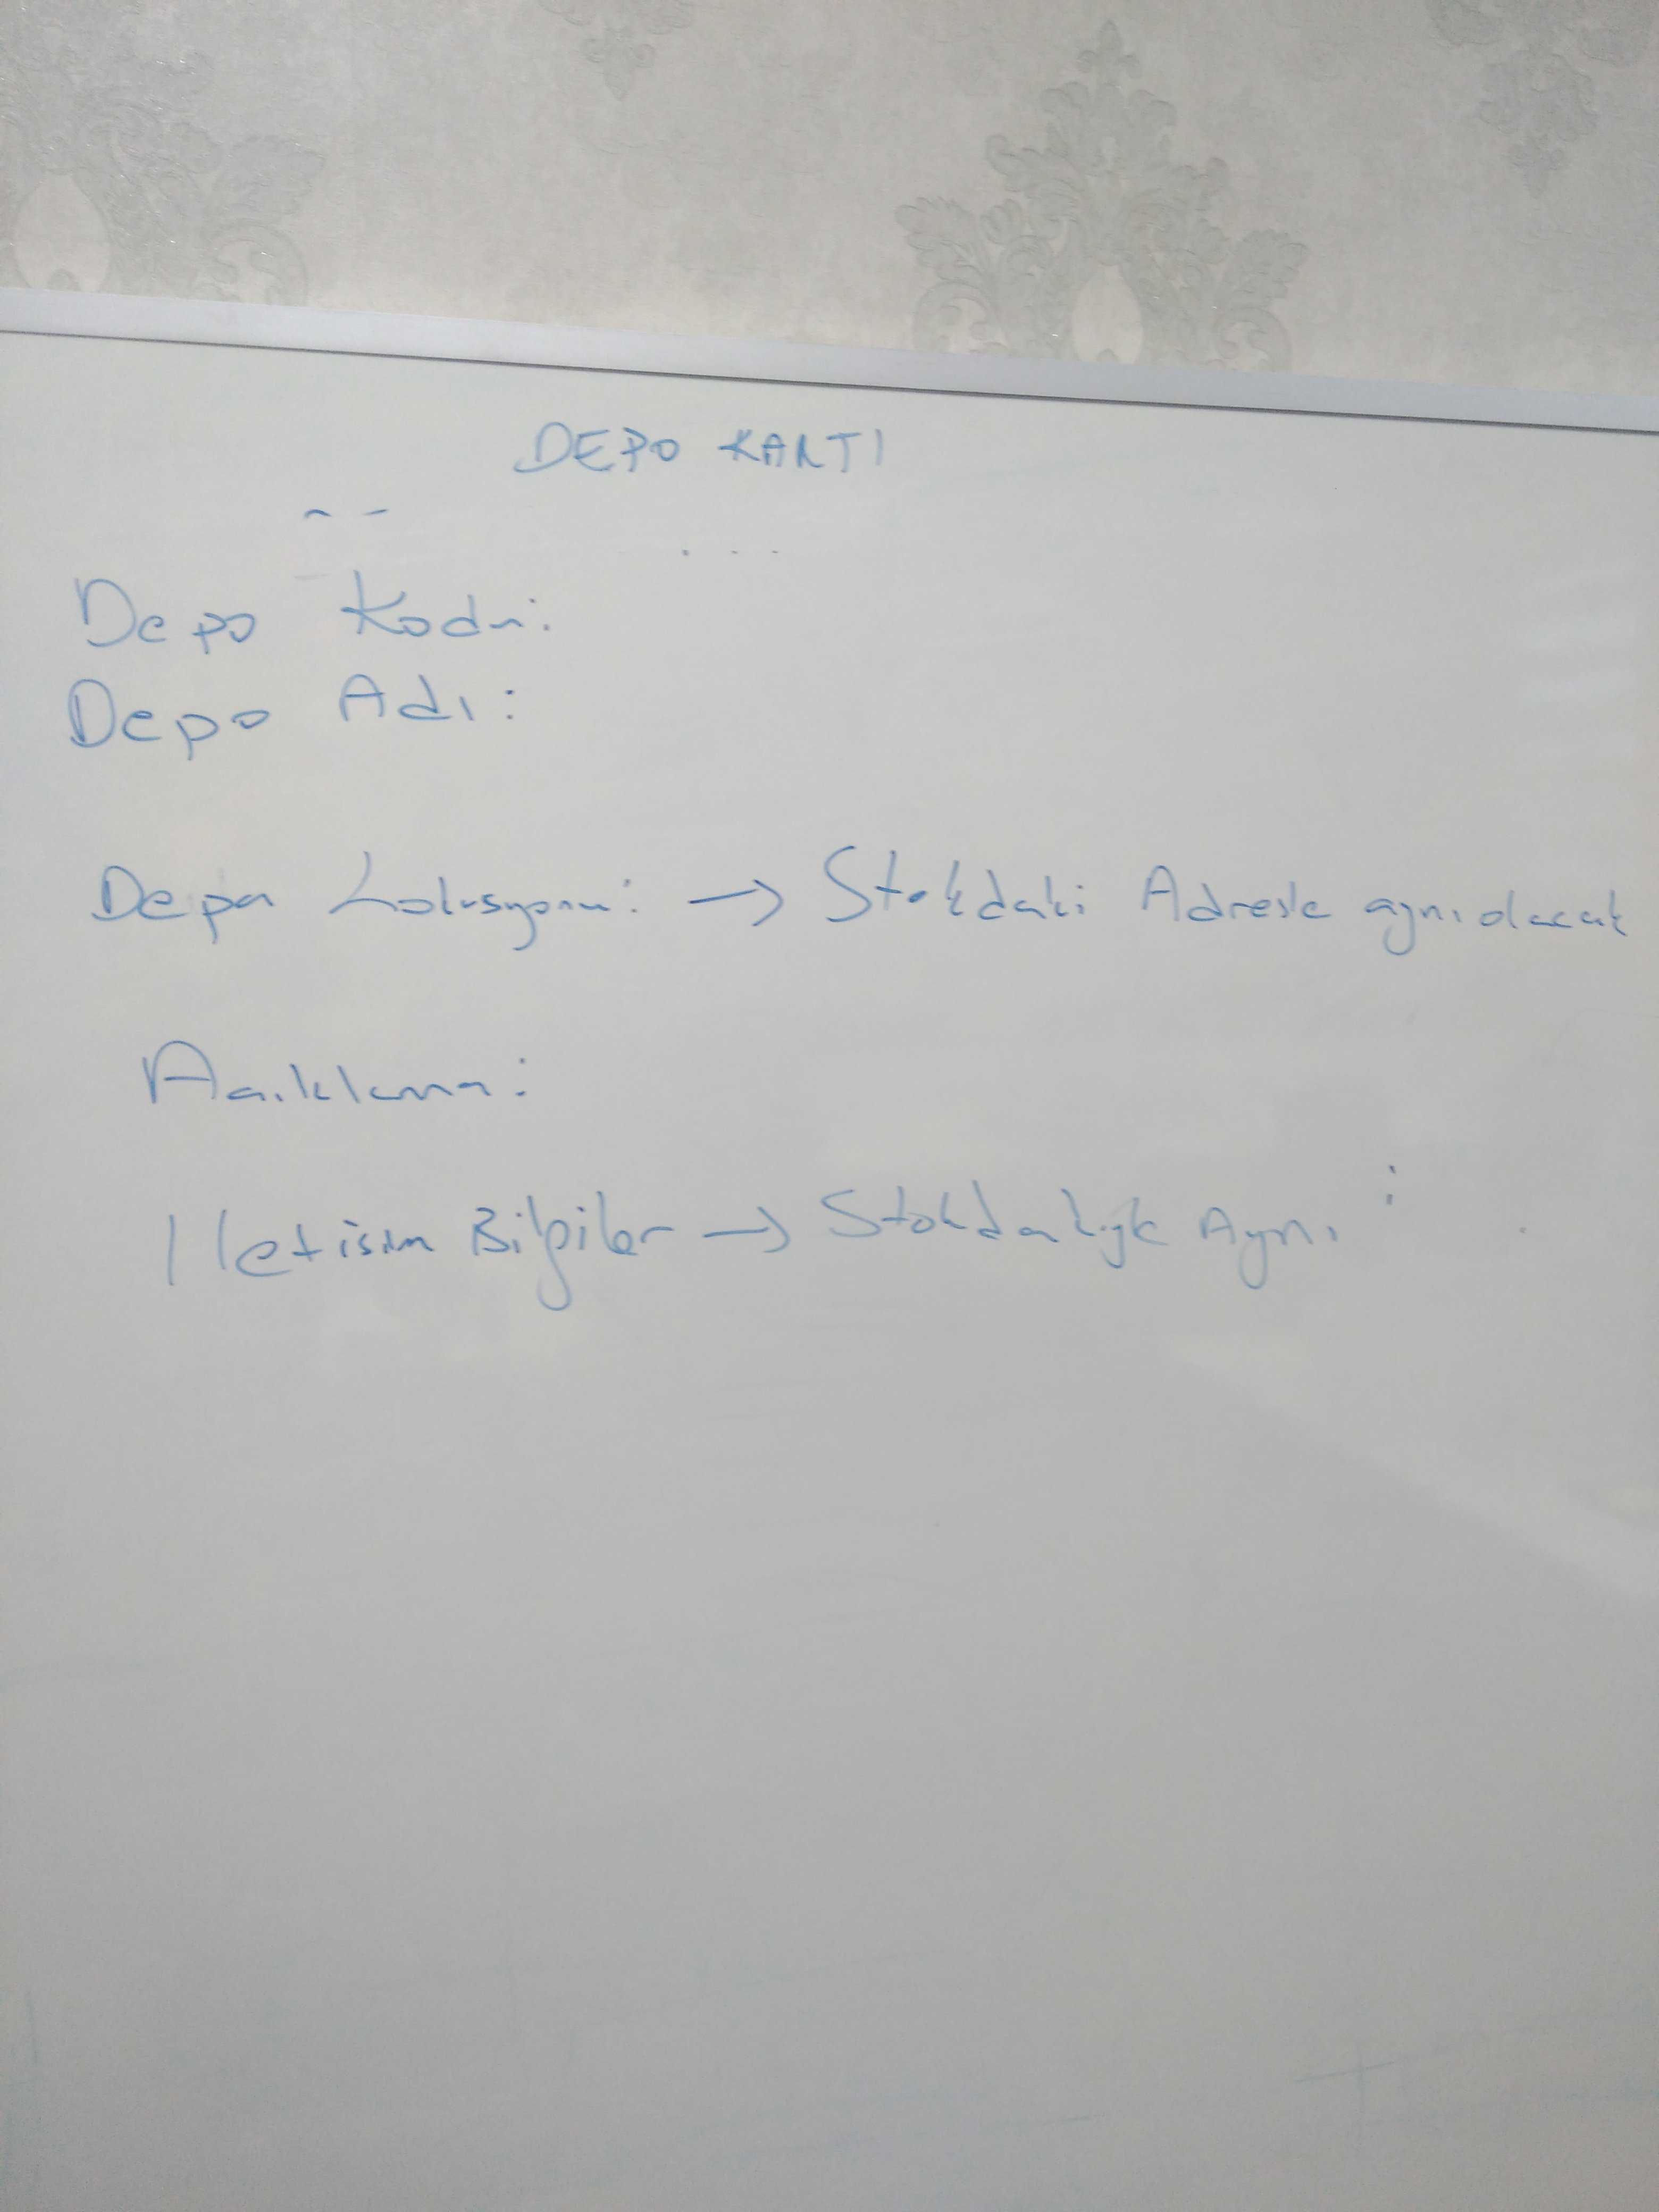 DEPO KARTI
Depo Kodu:
Depo Adı:
Depo Lokasyonu: → Stokdaki Adresle aynı olacak
Açıklama:
Iletisim Bilgiler → Stokdakiyle Aynı :